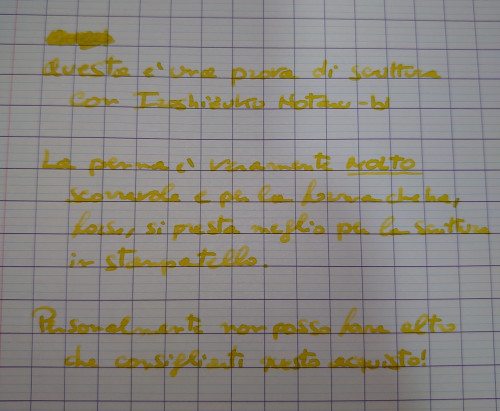 Questa è una prova di scrittura
con Iroshizuku Hotaru-bi
La penna è veramente MOLTO
scorrevole e per la forma che ha,
forse, si presta meglio per la scrittura
in stampatello.
Personalmente non posso fare altro
che consigliarti questo acquisto!